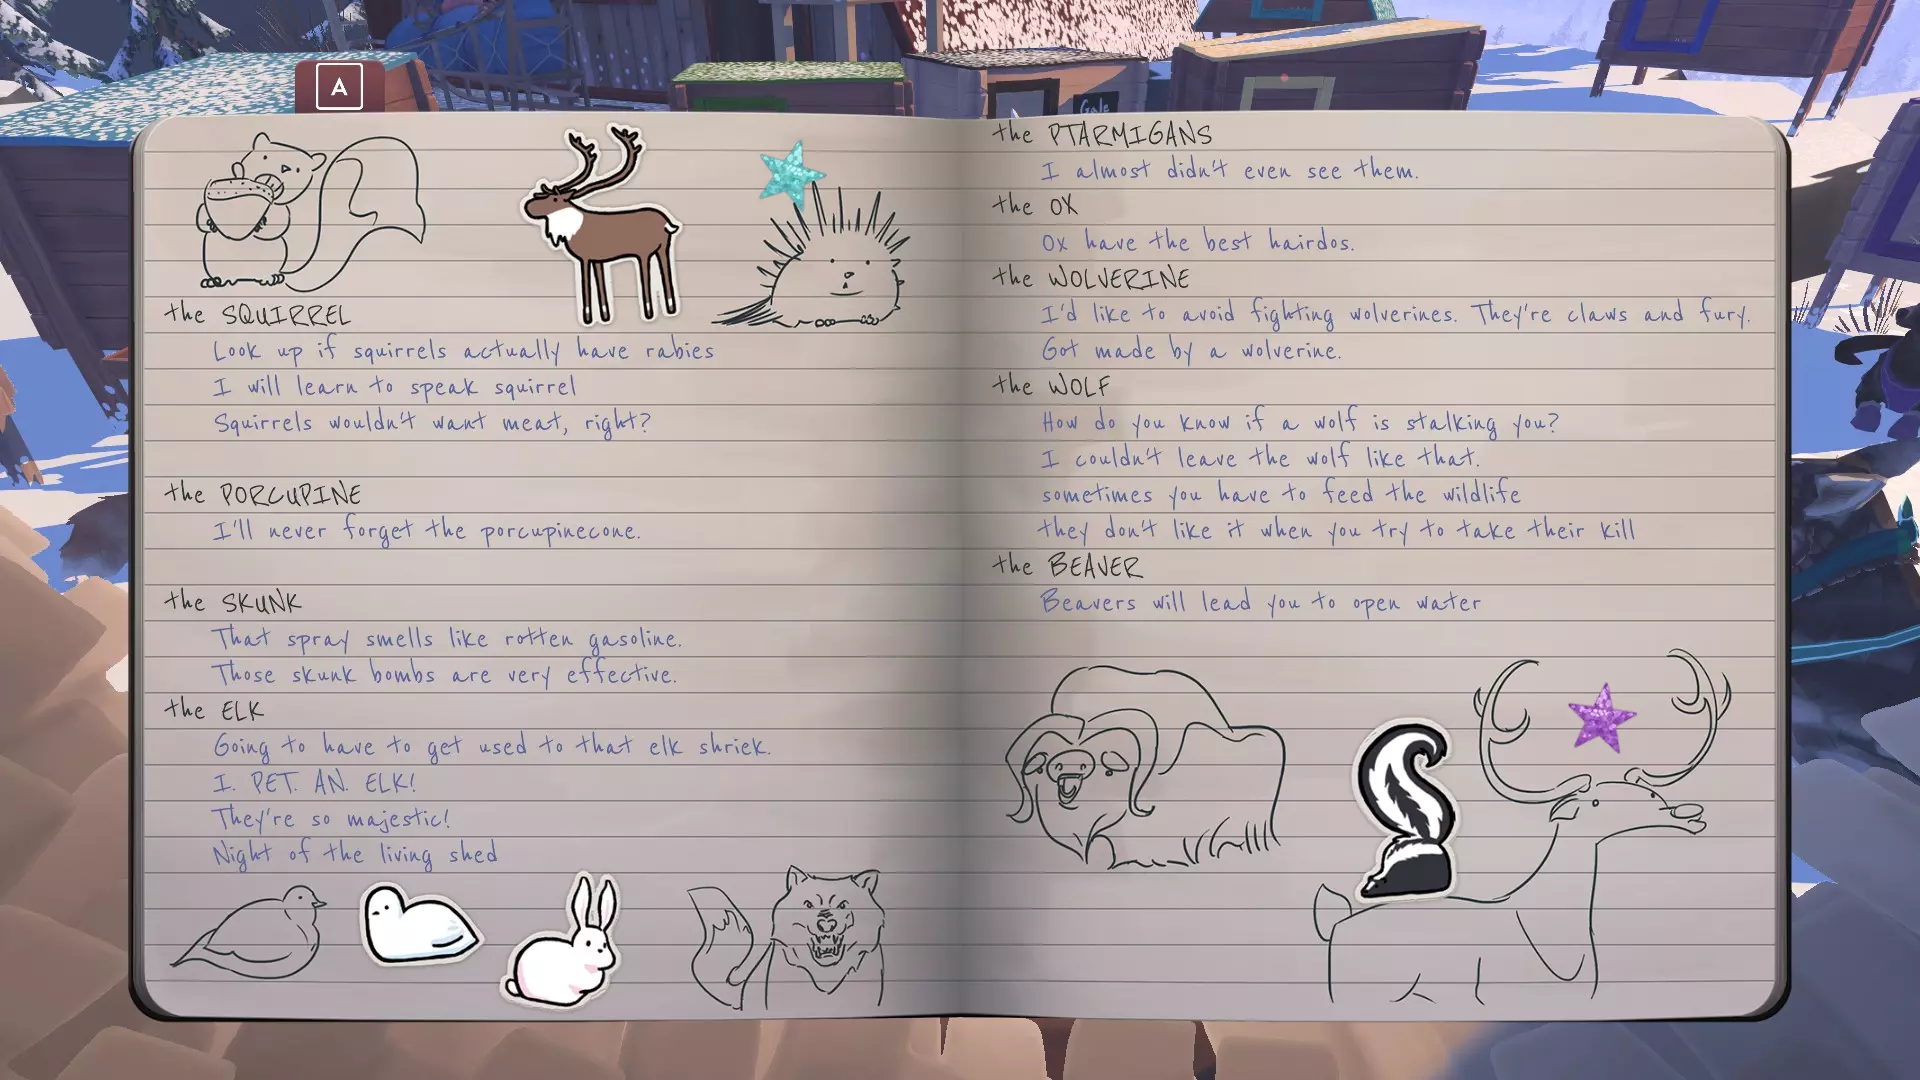 A
Gale
the SQUIRREL
Look up if squirrels actually have rabies
I will learn to speak squirrel
Squirrels wouldn't want meat, right?
the PORCUPINE
I'll never forget the porcupinecone.
the SKUNK
That spray smells like rotten gasoline.
Those skunk bombs are very effective.
the ELK
Going to have to get used to that elk shriek.
I. PET. AN. ELK!
They're so majestic!
Night of the living shed
the PTARMIGANS
I almost didn't even see them.
the OX
Ox have the best hairdos.
the WOLVERINE
I'd like to avoid fighting wolverines. They're claws and fury.
Got made by a wolverine.
the WOLF
How do you know if a wolf is stalking you?
I couldn't leave the wolf like that.
sometimes you have to feed the wildlife
they don't like it when you try to take their kill
the BEAVER
Beavers will lead you to open water